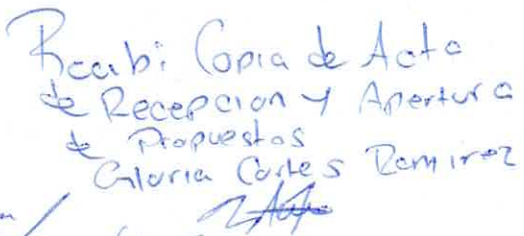 Recibi Copia de Acta
de Recepcion y Apertura
de Propuestas
Gloria Cortes Ramirez